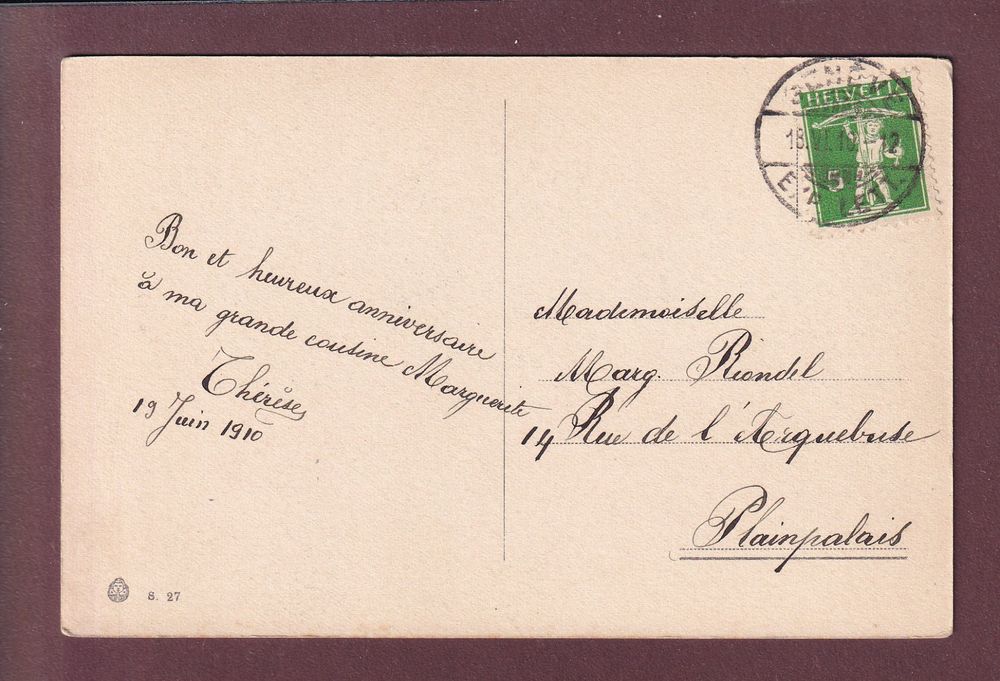 Bon et heureux anniversaire
à ma grande cousine Marguerite
Thérèse
19 Juin 1910
S. 27
HELVETIA
5
Mademoiselle
Marg. Riondel
14 Rue de l'Arquebuse
Plainpalais